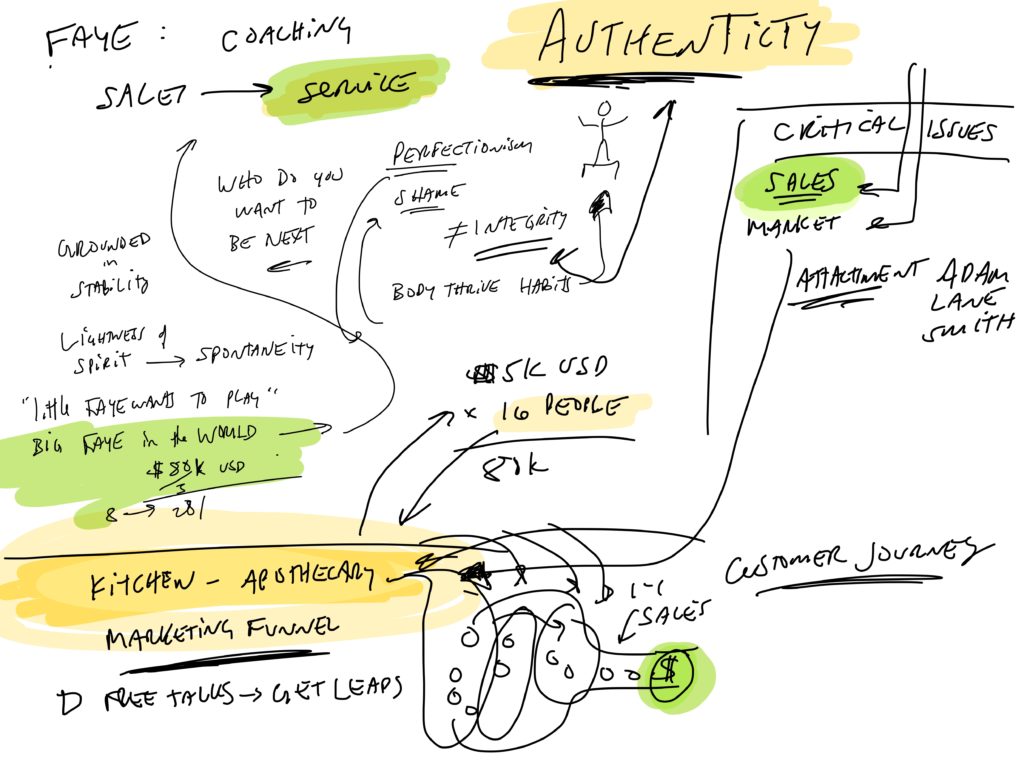 FAYE : COACHING
AUTHENTICTY
SALES → SERVICE
CRITICAL ISSUES
SALES
MARKET
ATTACHMENT
ADAM
LANE
SMITH
PERFECTIONISM
SHAME
≠ INTEGRITY
BODY THRIVE HABITS
WHO DO YOU
WANT TO
BE NEXT
GROUNDED
in
STABILITY
LIGHTNESS of
SPIRIT → SPONTANEITY
"little FAYE WANTS TO PLAY"
BIG FAYE in the WORLD
$80K USD
8 → 
5K USD
x 16 PEOPLE
80K
KITCHEN - APOTHECARY
MARKETING FUNNEL
FREE TALKS → GET LEADS
CUSTOMER JOURNEY
1-1
SALES
$